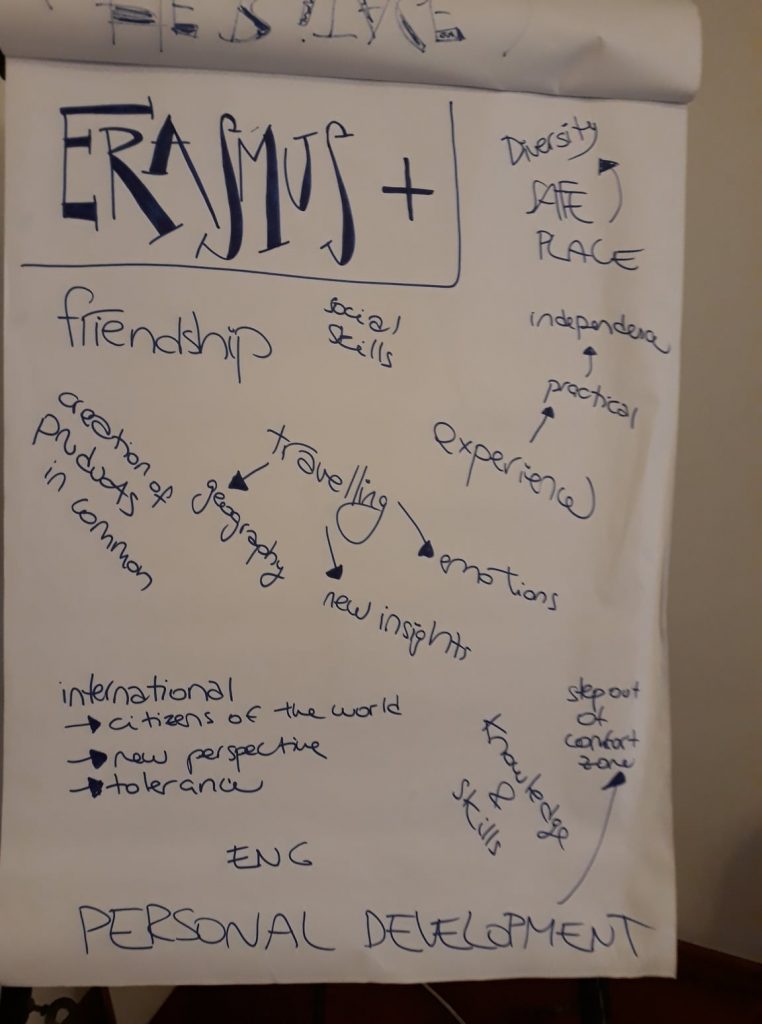 ERASMUS +
Diversity
SAFE
PLACE
friendship
social
skills
independence
practical
experience
creation of
products
in common
travelling
geography
new insights
emotions
international
→ citizens of the world
→ new perspective
→ tolerance
step out
of
comfort
zone
Knowledge
&
skills
ENG
PERSONAL DEVELOPMENT